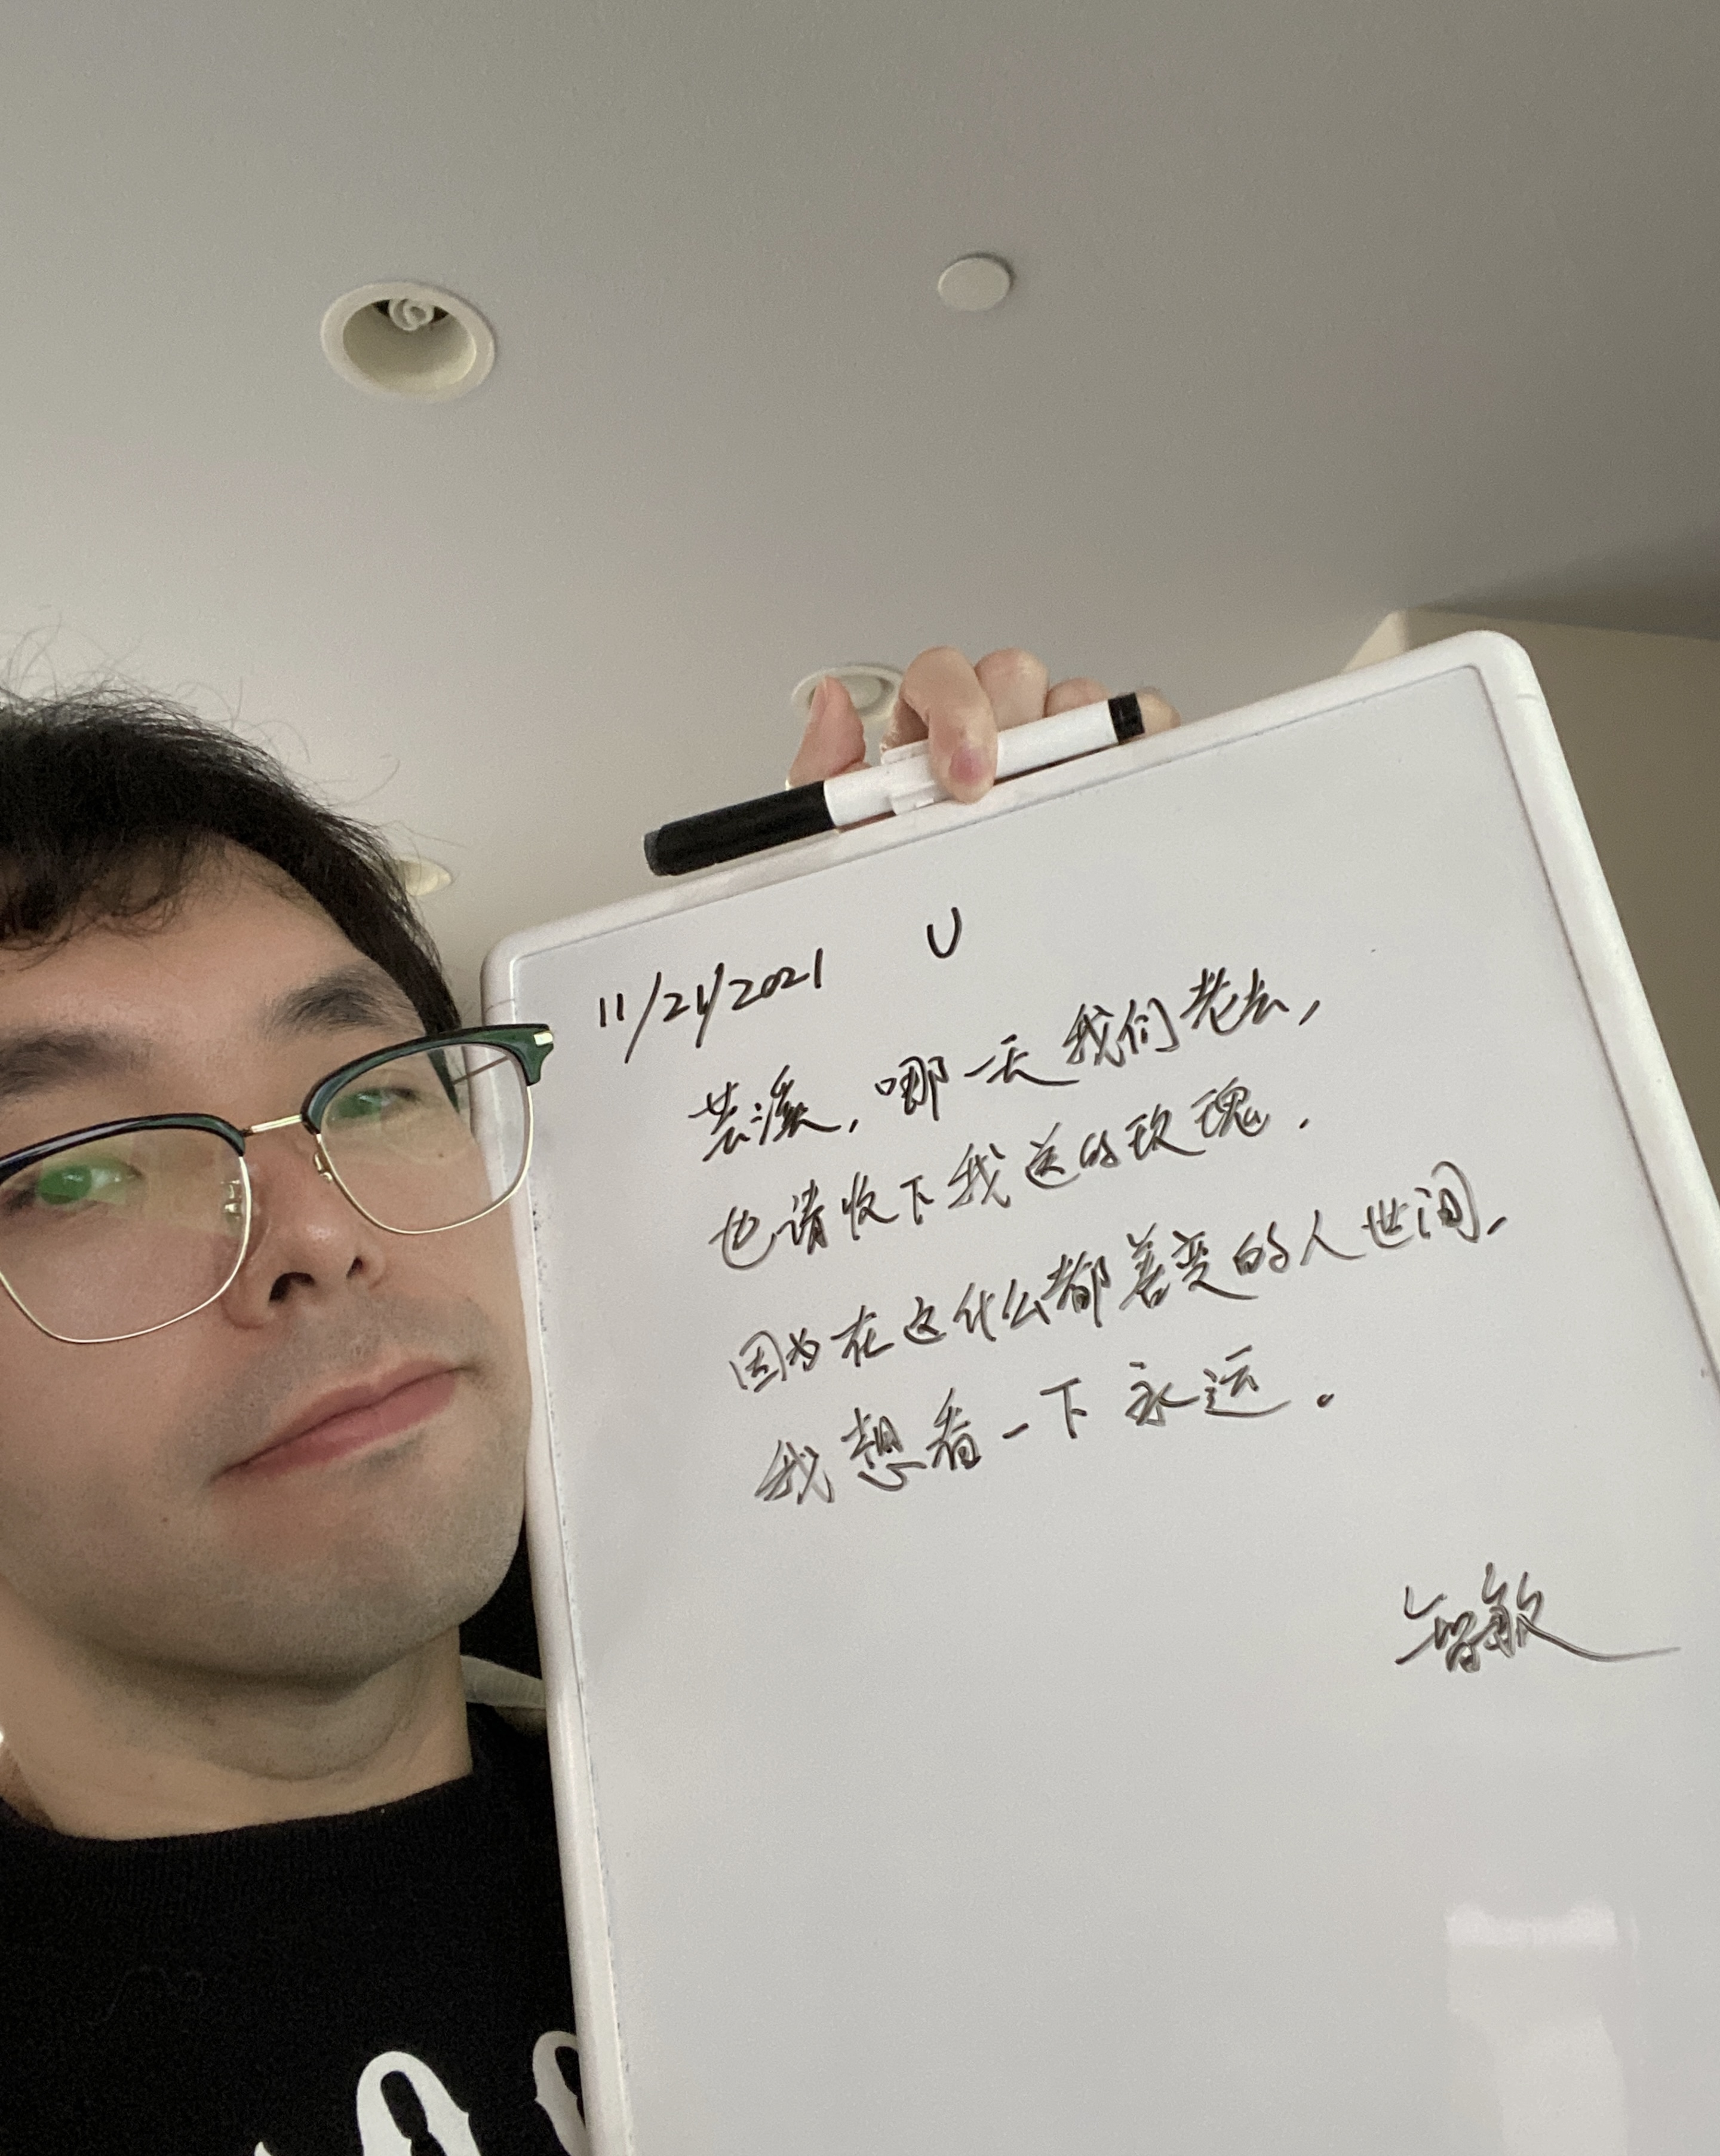 11/24/2021 U
芸溪，哪一天我们老去，
也请收下我送的玫瑰.
因为在这什么都善变的人世间，
我想看一下永远。
智敏